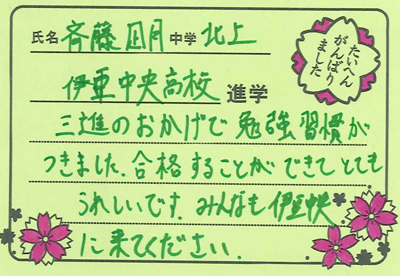 氏名 斉藤凪月 中学 北上
たいへん
がんばり
ました
伊豆中央高校 進学
三進のおかげで勉強習慣が
つきました。合格することができてとても
うれしいです。みんなも伊豆中央
に来てください。